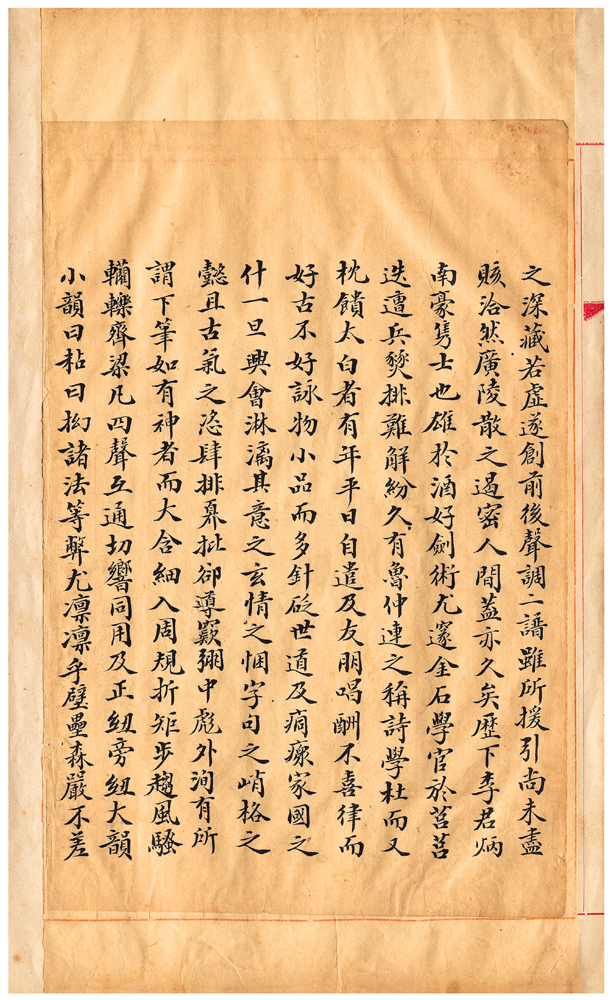 之深藏若虛遂創前後聲調二譜雖所援引尚未盡
賅洽然廣陵散之遏密人間蓋亦久矣歷下李君炳
南豪雋士也雄於酒好劍術尤邃金石學官於莒莒
迭遭兵燹排難解紛久有魯仲連之稱詩學杜而又
枕饋太白者有年平日自遣及友朋唱酬不喜律而
好古不好詠物小品而多針砭世道及痌瘝家國之
什一旦興會淋漓其意之玄情之悃字句之峭格之
懿且古氣之恣肆排奡批郤導窾弸中彪外洵有所
謂下筆如有神者而大含細入周規折矩步趨風騷
轥轢齊梁凡四聲互通切響同用及正紐旁紐大韻
小韻曰粘曰拗諸法等弊尤凛凛乎壁壘森嚴不差